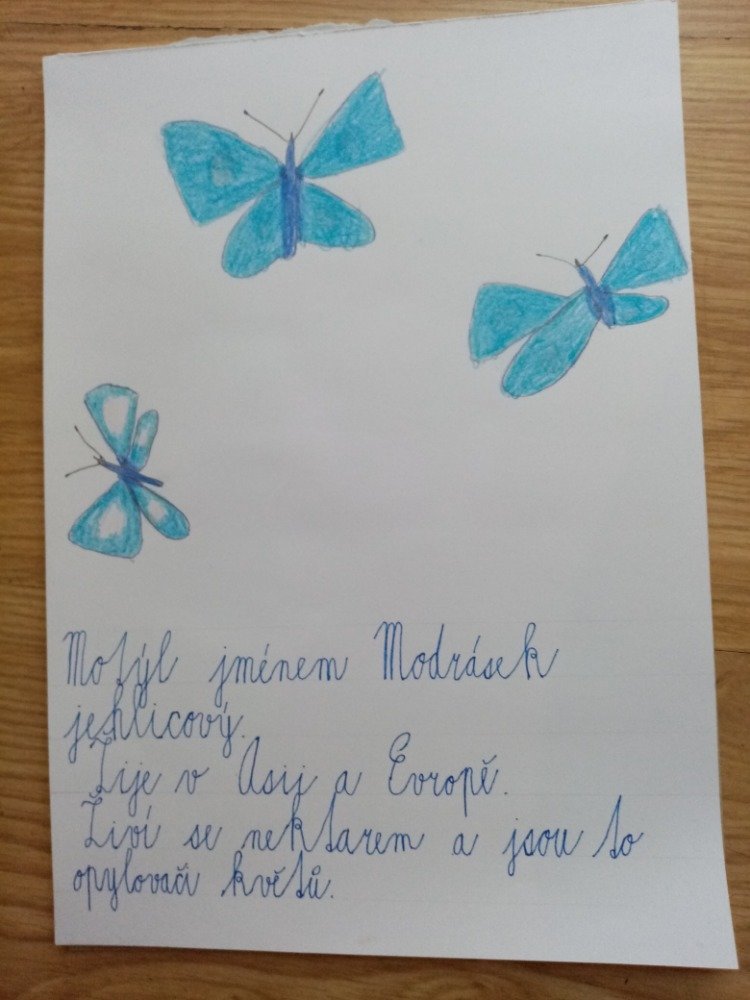 Motýl jménem Modrásek
jehlicový.
Žije v Asii a Evropě.
Živí se nektarem a jsou to
opylovači květů.